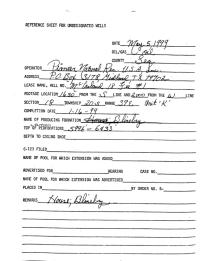 REFERENCE SHEET FOR UNDESIGNATED WELLS
DATE May 5, 1999
OIL/GAS Gas
COUNTY Lea
OPERATOR Pioneer Natural Res. U.S.A. Inc.
ADDRESS P.O. Box 3178 Midland TX 79702
LEASE NAME, WELL NO. 18 #1
FOOTAGE LOCATION 1650 FROM THE S LINE AND FROM THE W LINE
SECTION 18 TOWNSHIP 20-S RANGE 39E Unit 'K'
COMPLETION DATE 1-16-99
NAME OF PRODUCING FORMATION Blinebry
TOP OF PERFORATIONS 5996 - 6233
DEPTH TO CASING SHOE
C-123 FILED
NAME OF POOL FOR WHICH EXTENSION WAS ASKED
ADVERTISED FOR HEARING CASE NO.
NAME OF POOL FOR WHICH EXTENSION WAS ADVERTISED
PLACED IN BY ORDER NO. R-
REMARKS House, Blinebry